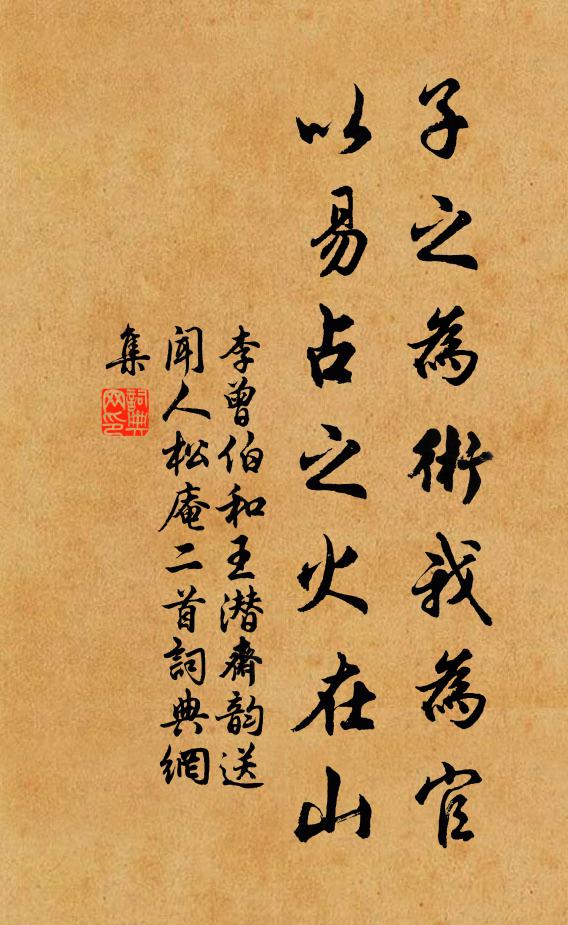 子之為術我為官
以易占之火在山
李曾伯和王潜齋韵送
聞人松庵二首詞典網
集
詞典
网印